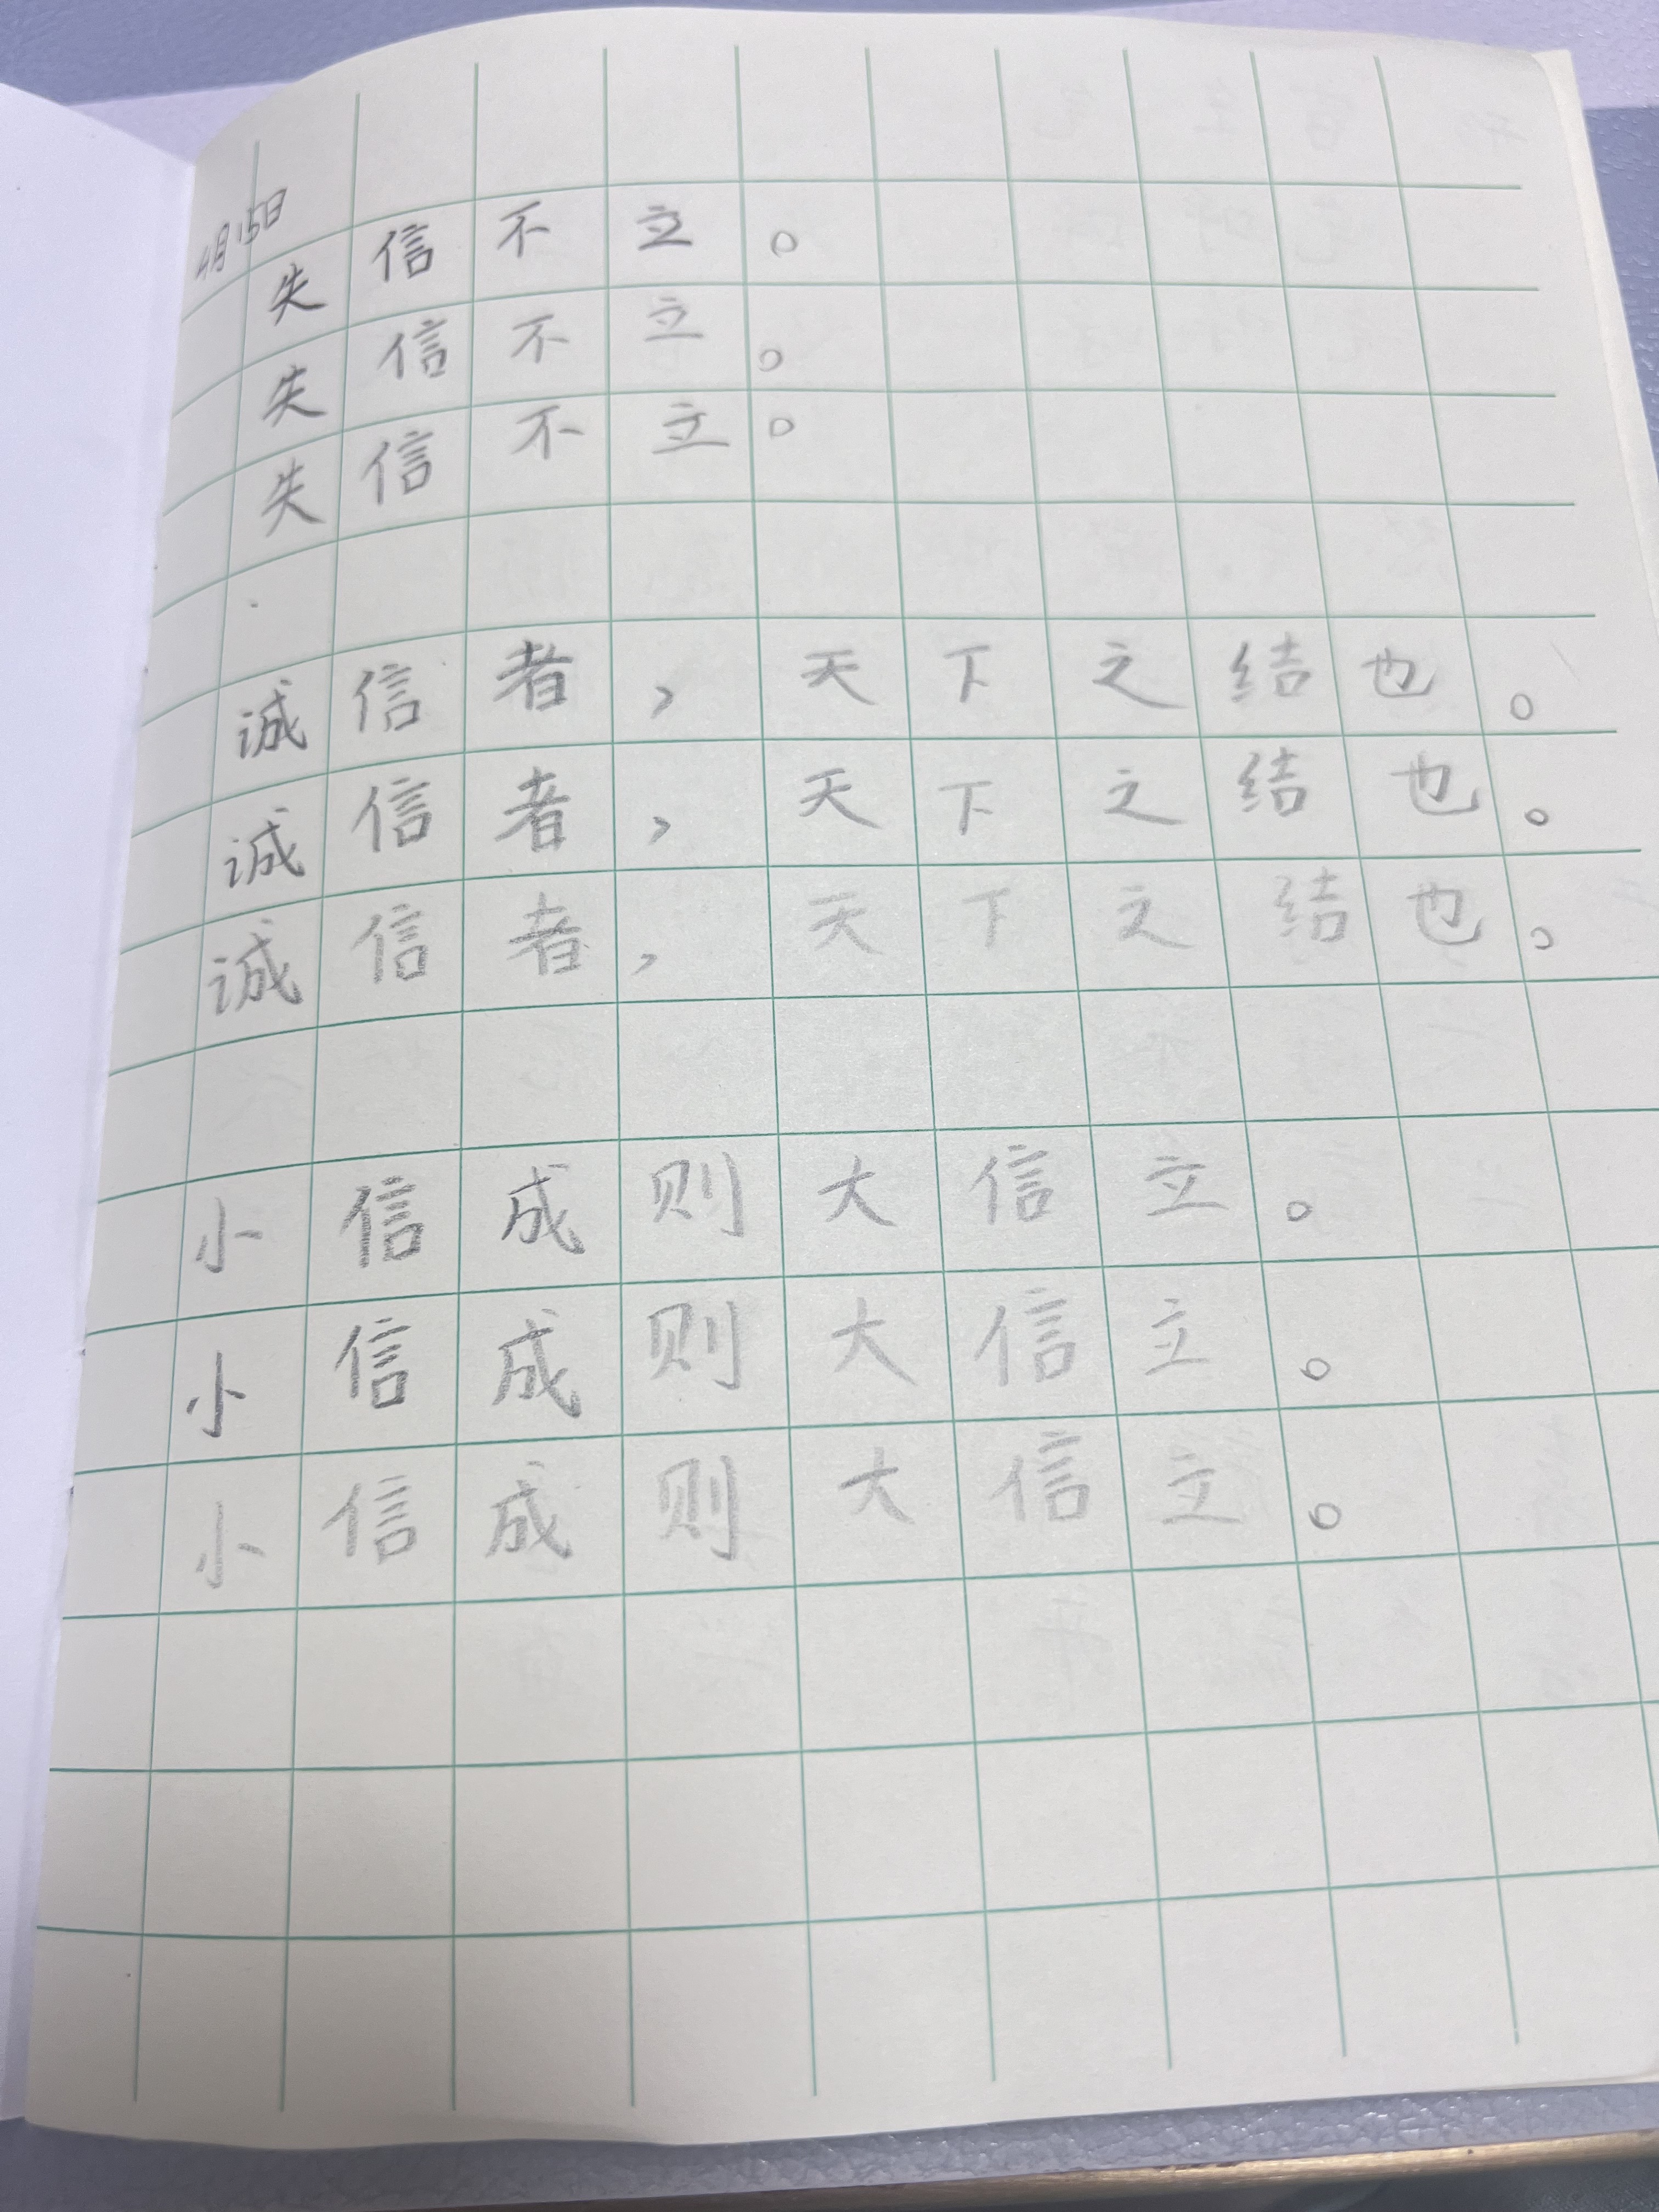 4月15日
失信不立。
失信不立。
失信不立。
诚信者，天下之结也。
诚信者，天下之结也。
诚信者，天下之结也。
小信成则大信立。
小信成则大信立。
小信成则大信立。